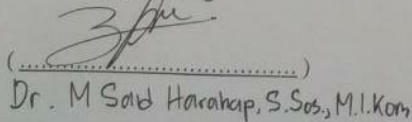 (..............................)
Dr. M Said Harahap, S.Sos., M.I.Kom